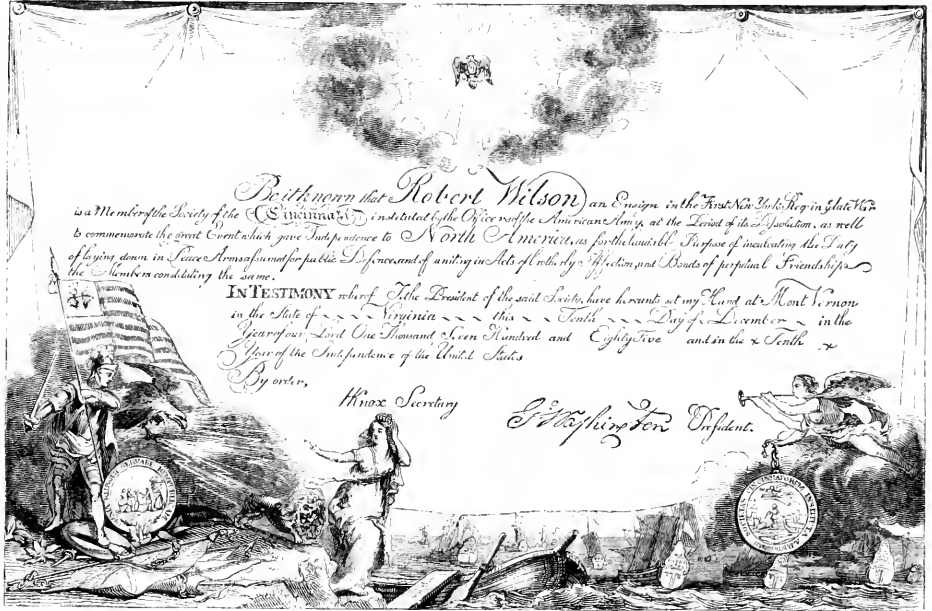 Be it known that Robert Wilson an Ensign in the First New York Reg. in ye late War
is a Member of the Society of the Cincinnati; instituted by the Officers of the American Army, at the Period of its Dissolution, as well
to commemorate the great Event which gave Independence to North America, as for the laudable Purpose of inculcating the Duty
of laying down in Peace Arms assumed for public Defence, and of uniting in Acts of brotherly Affection, and Bonds of perpetual Friendship
the Members constituting the same.
IN TESTIMONY wherof I, the President of the said Society, have hereunto set my Hand at Mont Vernon
in the State of Virginia this Tenth Day of December in the
Year of our Lord One Thousand Seven Hundred and Eighty Five and in the Tenth
Year of the Independence of the United States
By order,
HKnox Secretary
G. Washington President.